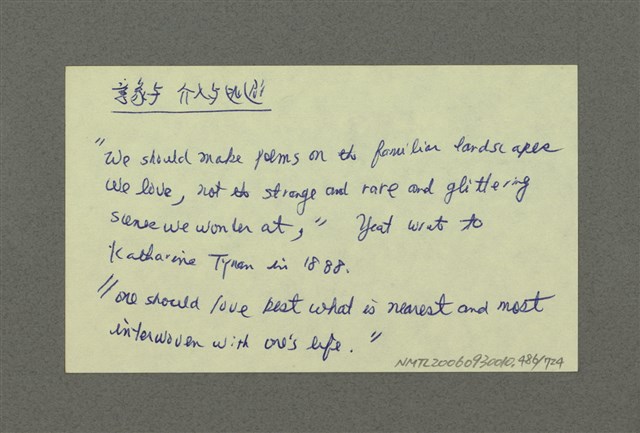 意象与 介入与逃避
"We should make poems on the familiar landscapes
we love, not the strange and rare and glittering
scenes we wonder at," Yeat wrote to
Katharine Tynan in 1888.
"one should love best what is nearest and most
interwoven with one's life."
NMTL20060930010.486/724